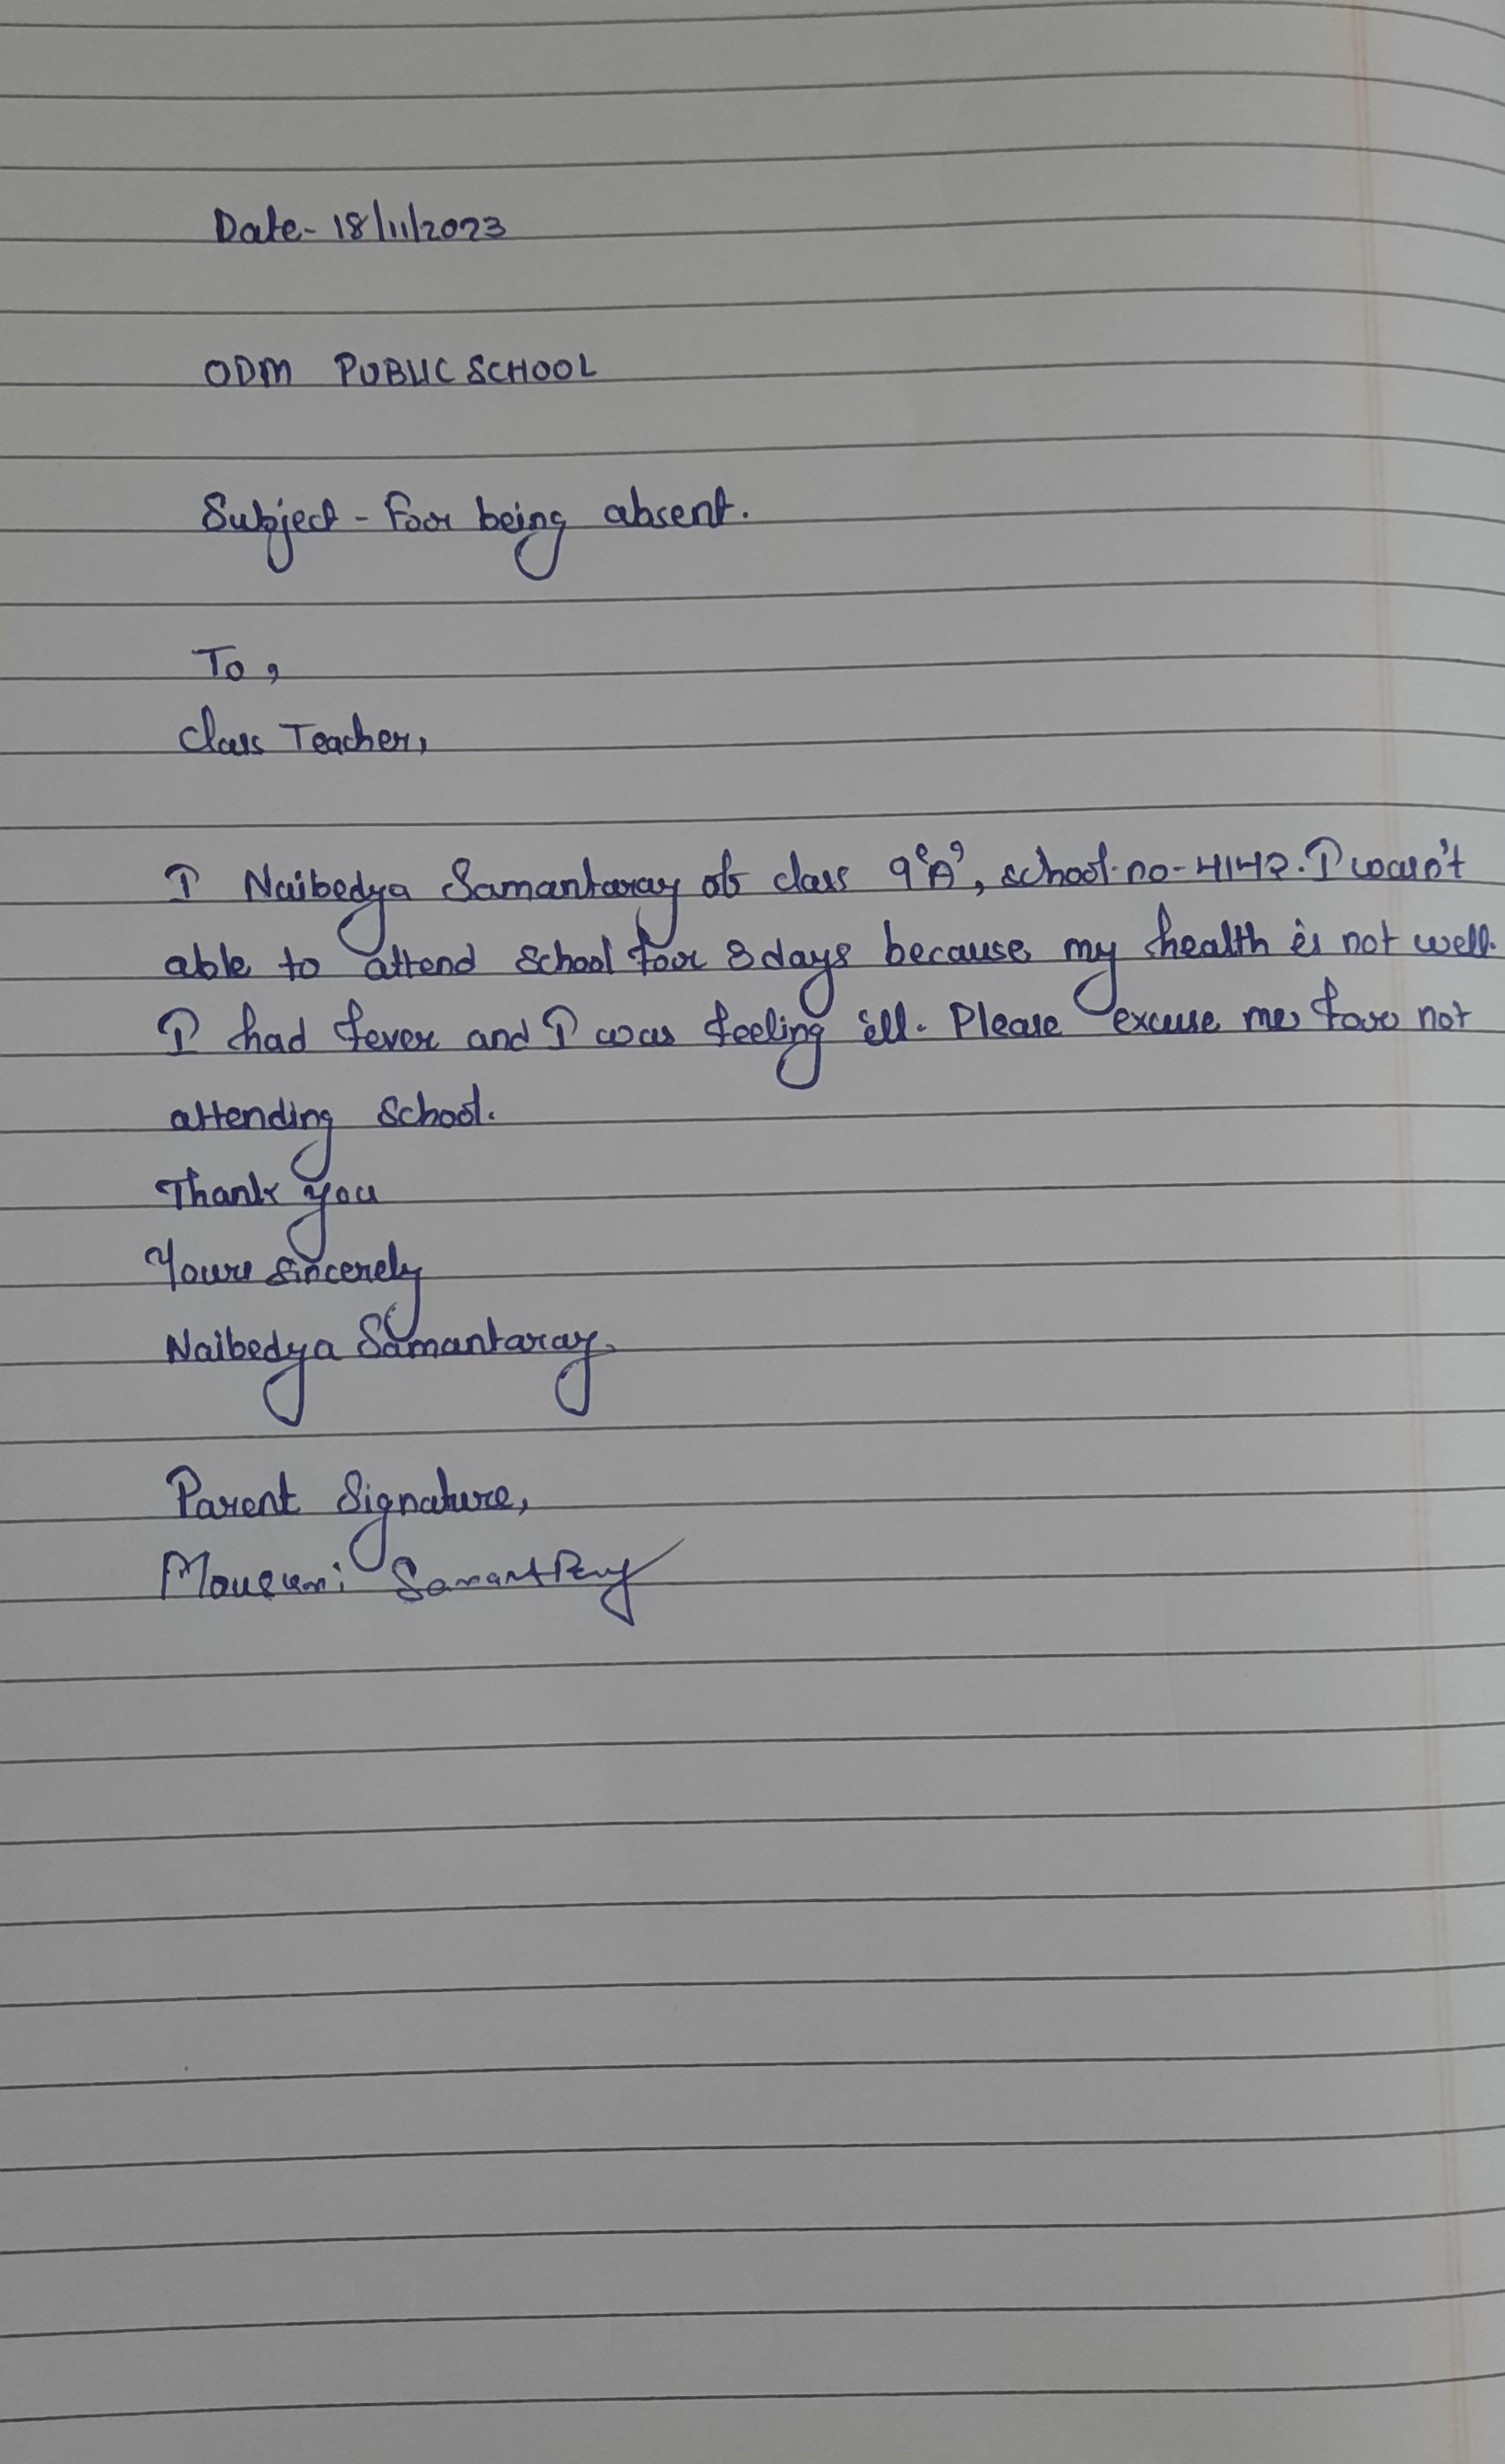 Date- 18/11/2023
ODM PUBLIC SCHOOL
Subject - For being absent.
To,
Class Teacher,
I Naibedya Samantaray of class 9'A', school.no-4142. I wasn't
able to attend school for 3 days because my health is not well.
I had fever and I was feeling ill. Please excuse me for not
attending school.
Thank you
Yours sincerely
Naibedya Samantaray.
Parent Signature,
Mousumi Samantray